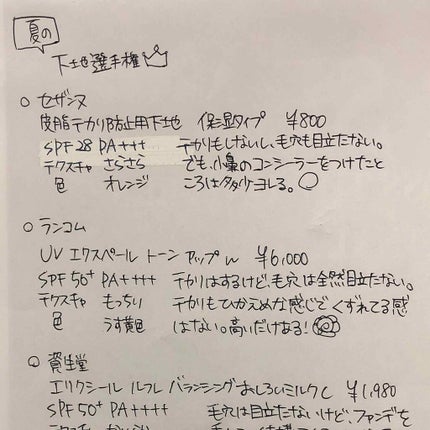 夏の
下地選手権
○ セザンヌ
皮脂テカリ防止用下地 保湿タイプ ¥800
SPF 28 PA+++ テカりもしないし、毛穴も目立たない。
テクスチャ さらさら でも、小鼻のコンシーラーをつけたと
色 オレンジ ころは多少ヨレる。○
○ ランコム
UV エクスペール トーン アップ n ¥6,000
SPF 50+ PA++++ テカりはするけど、毛穴は全然目立たない。
テクスチャ もっちり テカりもひかえめな感じでくずれてる感
色 うす黄色 はない。高いだけある!
○ 資生堂
エリクシール ルフレ バランシング おしろいミルク C ¥1,980
SPF 50+ PA++++ 毛穴は目立たないけど、ファンデを
テクスチャ